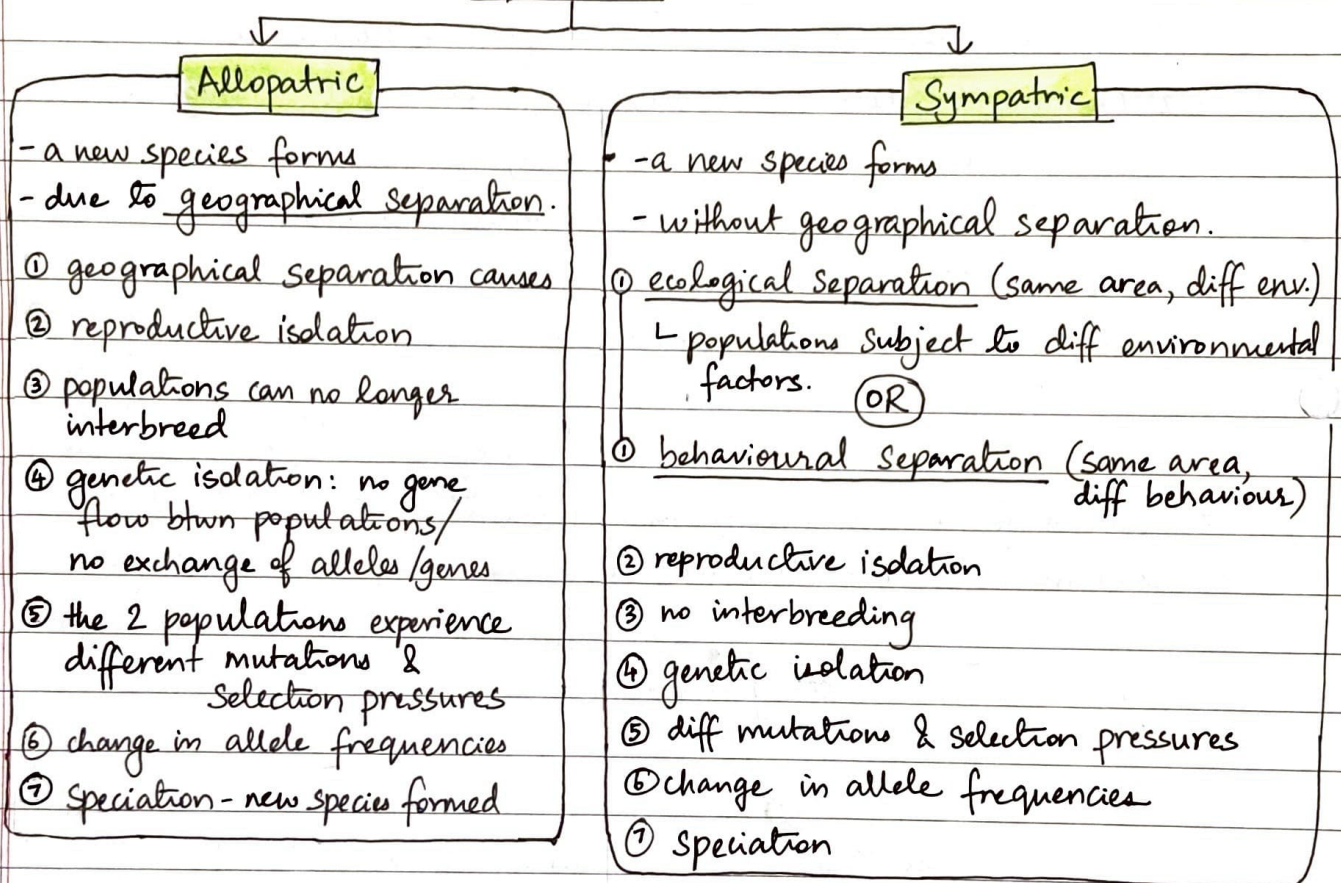 Allopatric
- a new species forms
- due to geographical separation.
① geographical separation causes
② reproductive isolation
③ populations can no longer
interbreed
④ genetic isolation: no gene
flow btwn populations/
no exchange of alleles/genes
⑤ the 2 populations experience
different mutations &
selection pressures
⑥ change in allele frequencies
⑦ speciation - new species formed
Sympatric
- a new species forms
- without geographical separation.
① ecological separation (same area, diff env.)
└ populations subject to diff environmental
factors.
OR
① behavioural separation (same area,
diff behaviour)
② reproductive isolation
③ no interbreeding
④ genetic isolation
⑤ diff mutations & selection pressures
⑥ change in allele frequencies
⑦ speciation